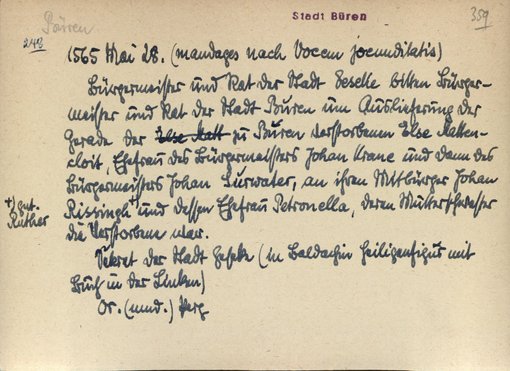 Büren
Stadt Büren
359
243
1565 Mai 28. (mandages nach Vocem jocunditatis)
Bürgermeister und Rat der Stadt Geseke bitten Bürger-
meister und Rat der Stadt Büren um Auslieferung der
Gerade der Else Katt zu Büren verstorbenen Else Katten-
cloit, Ehefrau des Bürgermeisters Johan Krane und dann des
Bürgermeisters Johan Surwater, an ihren Mitbürger Johan
+) gut. Rissingk +) und dessen Ehefrau Petronella, deren Mutterschwester
Ruther die Verstorbene war.
Sekret der Stadt Geseke (in Baldachin Heiligenfigur mit
Buch in der Linken)
Or. (mnd.) Perg